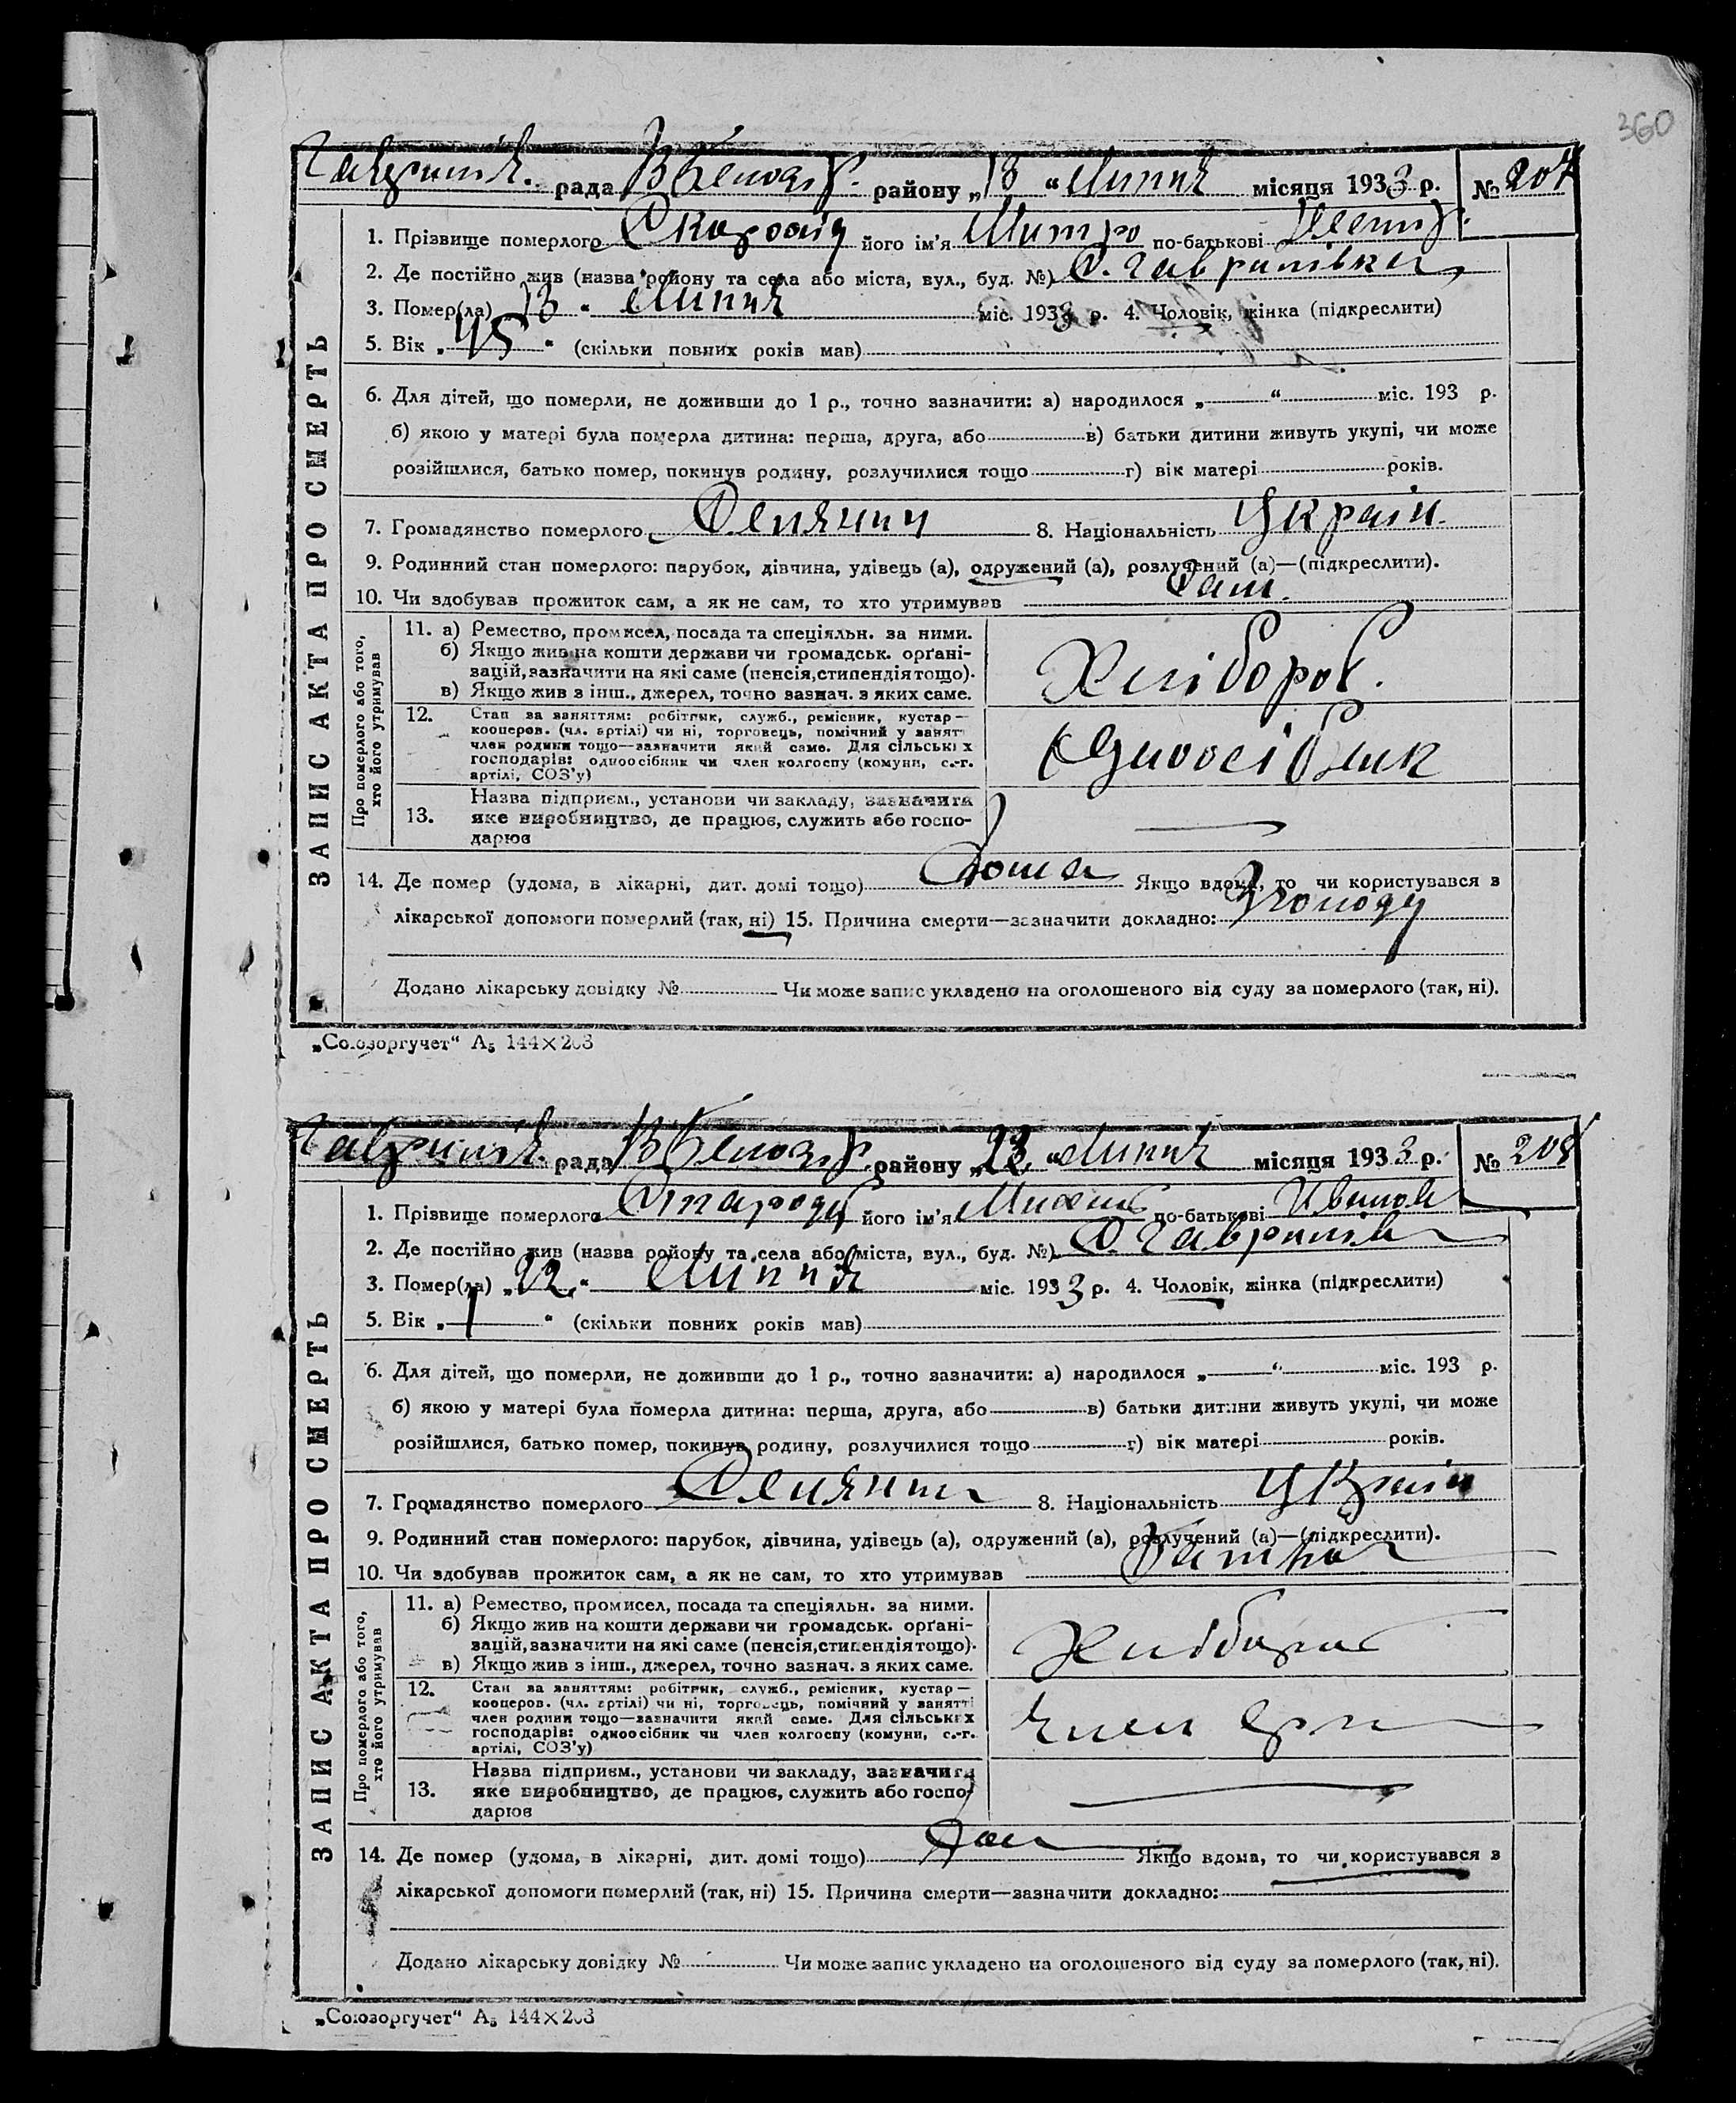 360
Гаврилів. рада В Белозер. району „18 “ Липня місяця 1933 р. № 207
ЗАПИС АКТА ПРО СМЕРТЬ
1. Прізвище померлого його ім'я Митро по-батькові
2. Де постійно жив (назва району та села або міста, вул., буд. №) С. Гаврилівка
3. Помер(ла) „13 “ Липня міс. 1933 р. 4. Чоловік, жінка (підкреслити)
5. Вік „ 45 “ (скільки повних років мав)
6. Для дітей, що померли, не доживши до 1 р., точно зазначити: а) народилося „ “ міс. 193 р.
б) якою у матері була померла дитина: перша, друга, або в) батьки дитини живуть укупі, чи може
розійшлися, батько помер, покинув родину, розлучилися тощо г) вік матері років.
7. Громадянство померлого Селянин 8. Національність Україн.
9. Родинний стан померлого: парубок, дівчина, удівець (а), одружений (а), розлучений (а)—(підкреслити).
10. Чи здобував прожиток сам, а як не сам, то хто утримував Сам.
Про померлого або того, хто його утримував
11. а) Ремество, промисел, посада та спеціяльн. за ними.
б) Якщо жив на кошти держави чи громадськ. орґані-
зацій, зазначити на які саме (пенсія, стипендія тощо).
в) Якщо жив з інш., джерел, точно зазнач. з яких саме.
Хлібороб.
12. Стан за заняттям: робітник, служб., ремісник, кустар—
кооперов. (чл. артілі) чи ні, торговець, помічний у занятті
член родини тощо—зазначити який саме. Для сільських
господарів: одноосібник чи член колгоспу (комуни, с.-г.
артілі, СОЗ'у)
Одноосібник
13. Назва підприєм., установи чи закладу, зазначити
яке виробництво, де працює, служить або госпо-
дарює
14. Де помер (удома, в лікарні, дит. домі тощо) Дома Якщо вдома, то чи користувався з
лікарської допомоги померлий (так, ні) 15. Причина смерти—зазначити докладно: З голоду
Додано лікарську довідку № Чи може запис укладено на оголошеного від суду за померлого (так, ні).
„Союзоргучет“ А₅ 144×203
Гаврилів. рада В Белозер. району „23 “ Липня місяця 1933 р. № 208
ЗАПИС АКТА ПРО СМЕРТЬ
1. Прізвище померлого Стародуб його ім'я Михайло по-батькові Иванов
2. Де постійно жив (назва району та села або міста, вул., буд. №) С. Гаврилівка
3. Помер(ла) „22 “ Липня міс. 1933 р. 4. Чоловік, жінка (підкреслити)
5. Вік „ 1 “ (скільки повних років мав)
6. Для дітей, що померли, не доживши до 1 р., точно зазначити: а) народилося „ “ міс. 193 р.
б) якою у матері була померла дитина: перша, друга, або в) батьки дитини живуть укупі, чи може
розійшлися, батько помер, покинув родину, розлучилися тощо г) вік матері років.
7. Громадянство померлого Селянин 8. Національність Україн
9. Родинний стан померлого: парубок, дівчина, удівець (а), одружений (а), розлучений (а)—(підкреслити).
10. Чи здобував прожиток сам, а як не сам, то хто утримував Батько
Про померлого або того, хто його утримував
11. а) Ремество, промисел, посада та спеціяльн. за ними.
б) Якщо жив на кошти держави чи громадськ. орґані-
зацій, зазначити на які саме (пенсія, стипендія тощо).
в) Якщо жив з інш., джерел, точно зазнач. з яких саме.
Хлібороб
12. Стан за заняттям: робітник, служб., ремісник, кустар—
кооперов. (чл. артілі) чи ні, торговець, помічний у занятті
член родини тощо—зазначити який саме. Для сільських
господарів: одноосібник чи член колгоспу (комуни, с.-г.
артілі, СОЗ'у)
Член
13. Назва підприєм., установи чи закладу, зазначити
яке виробництво, де працює, служить або госпо-
дарює
14. Де помер (удома, в лікарні, дит. домі тощо) Якщо вдома, то чи користувався з
лікарської допомоги померлий (так, ні) 15. Причина смерти—зазначити докладно:
Додано лікарську довідку № Чи може запис укладено на оголошеного від суду за померлого (так, ні).
„Союзоргучет“ А₅ 144×203